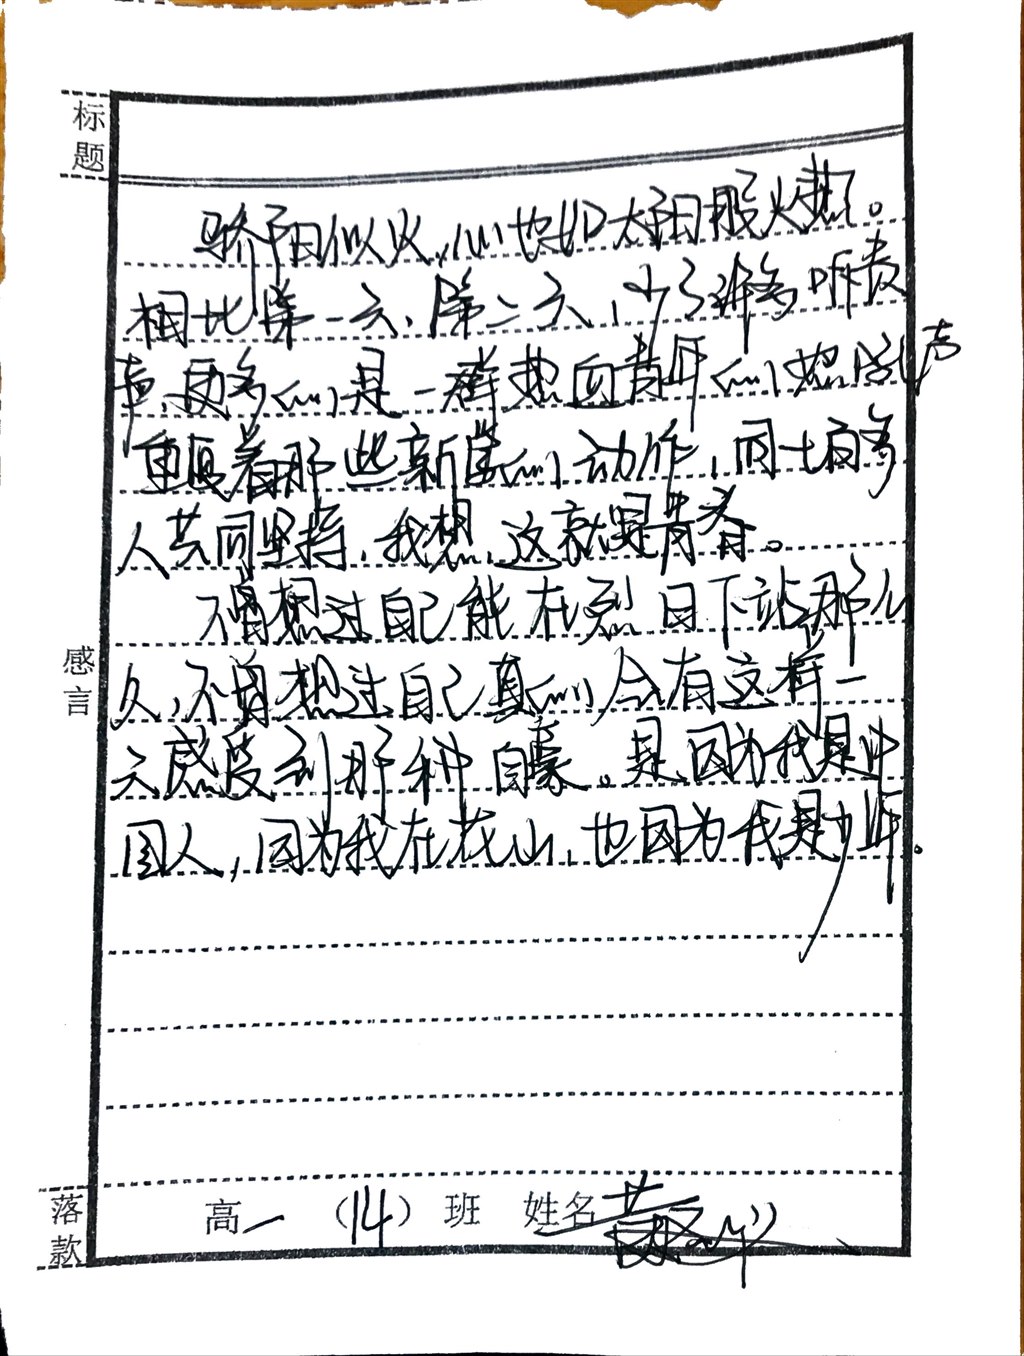 标题
骄阳似火,心也如太阳般火热。
相比第一天,第二天,少了许多呵责
声,更多的是一群热血青年的怒吼声
重复着那些新学的动作,同七百多
人共同坚持,我想,这就是青春。
不曾想过自己能在烈日下站那么
久,不曾想过自己真的会有这样一
天感受到那种自豪。是因为我是中
国人,因为我在花山,也因为我是少年。
感言
落款
高一(14)班 姓名